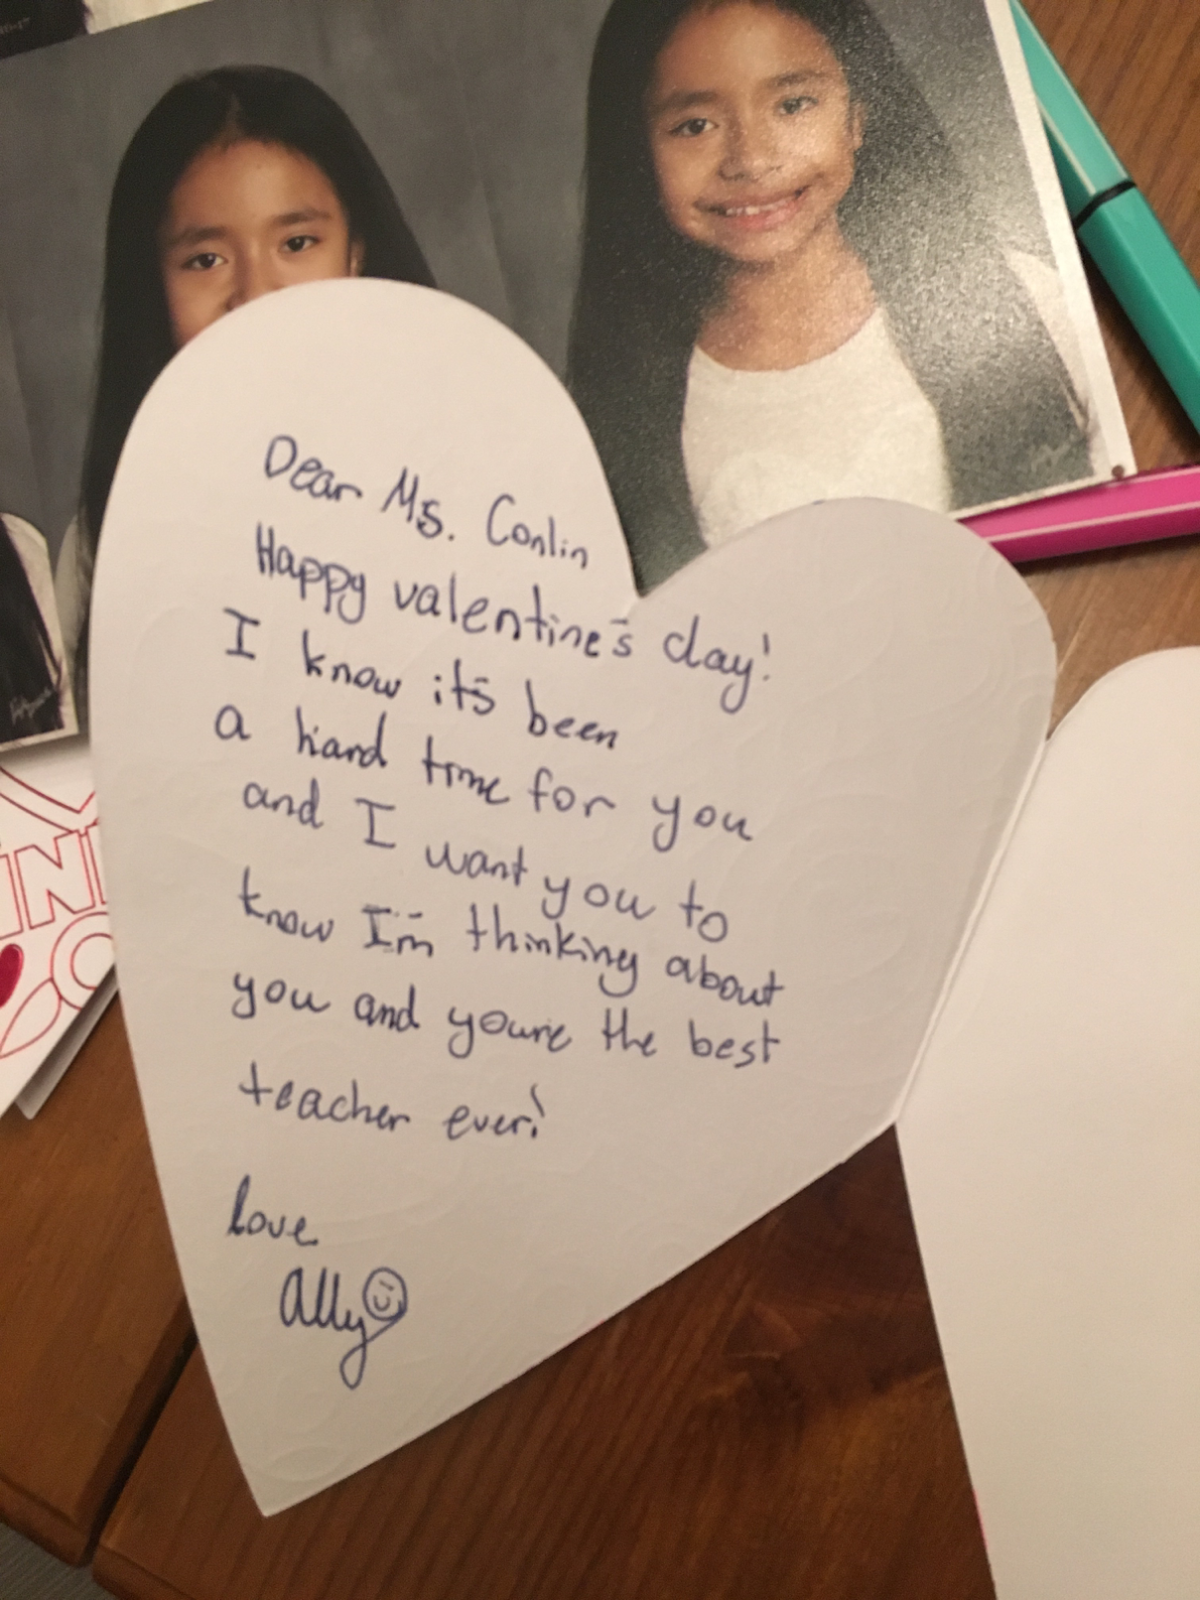 Dear Ms. Conlin
Happy valentine's day!
I know it's been
a hard time for you
and I want you to
know I'm thinking about
you and youre the best
teacher ever!
love
Ally
IN